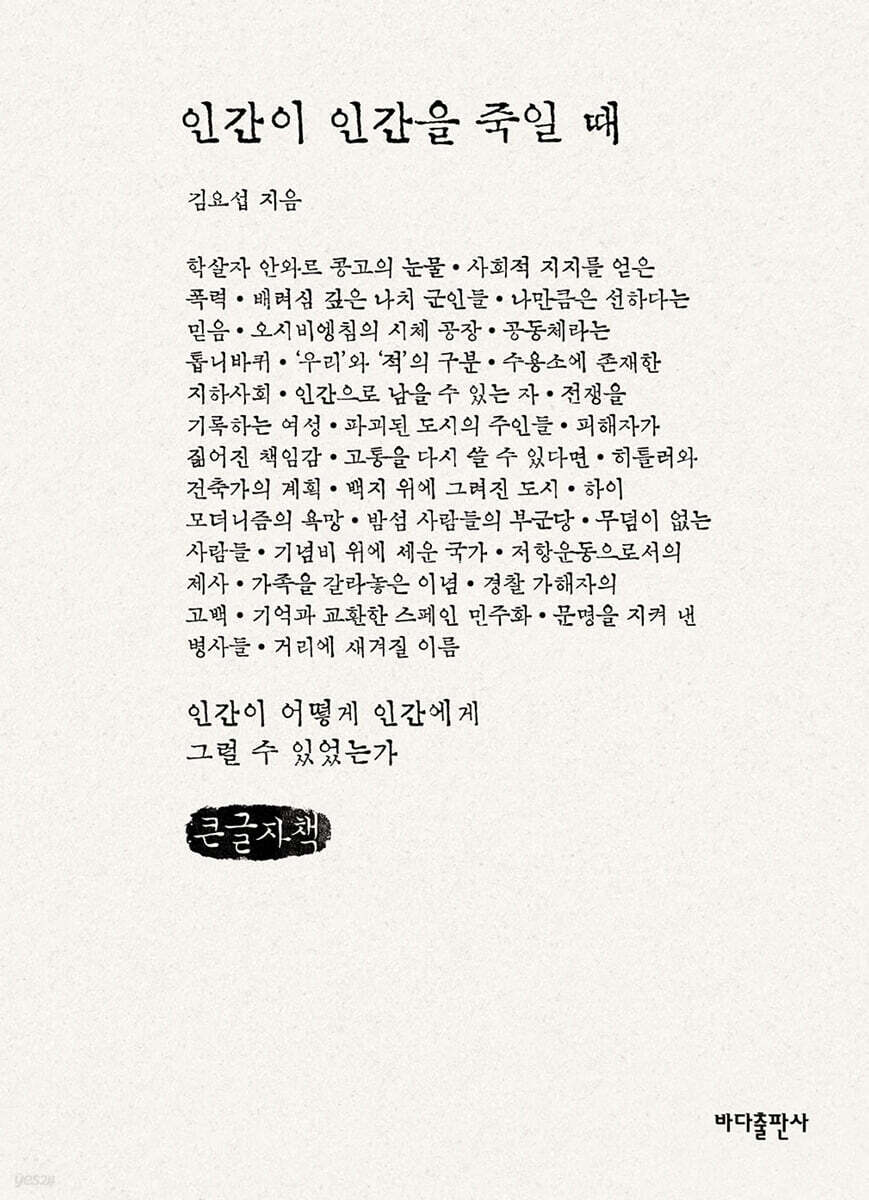 인간이 인간을 죽일 때
김요섭 지음
학살자 안와르 콩고의 눈물 • 사회적 지지를 얻은
폭력 • 배려심 깊은 나치 군인들 • 나만큼은 선하다는
믿음 • 오시비엥침의 시체 공장 • 공동체라는
톱니바퀴 • ‘우리’와 ‘적’의 구분 • 수용소에 존재한
지하사회 • 인간으로 남을 수 있는 자 • 전쟁을
기록하는 여성 • 파괴된 도시의 주인들 • 피해자가
짊어진 책임감 • 고통을 다시 쓸 수 있다면 • 히틀러와
건축가의 계획 • 백지 위에 그려진 도시 • 하이
모더니즘의 욕망 • 밤섬 사람들의 부군당 • 무덤이 없는
사람들 • 기념비 위에 세운 국가 • 저항운동으로서의
제사 • 가족을 갈라놓은 이념 • 경찰 가해자의
고백 • 기억과 교환한 스페인 민주화 • 문명을 지켜 낸
병사들 • 거리에 새겨질 이름
인간이 어떻게 인간에게
그럴 수 있었는가
큰글자책
바다출판사
yes24